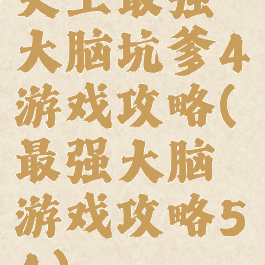 史上最强
大脑坑爹4
游戏攻略(
最强大脑
游戏攻略5